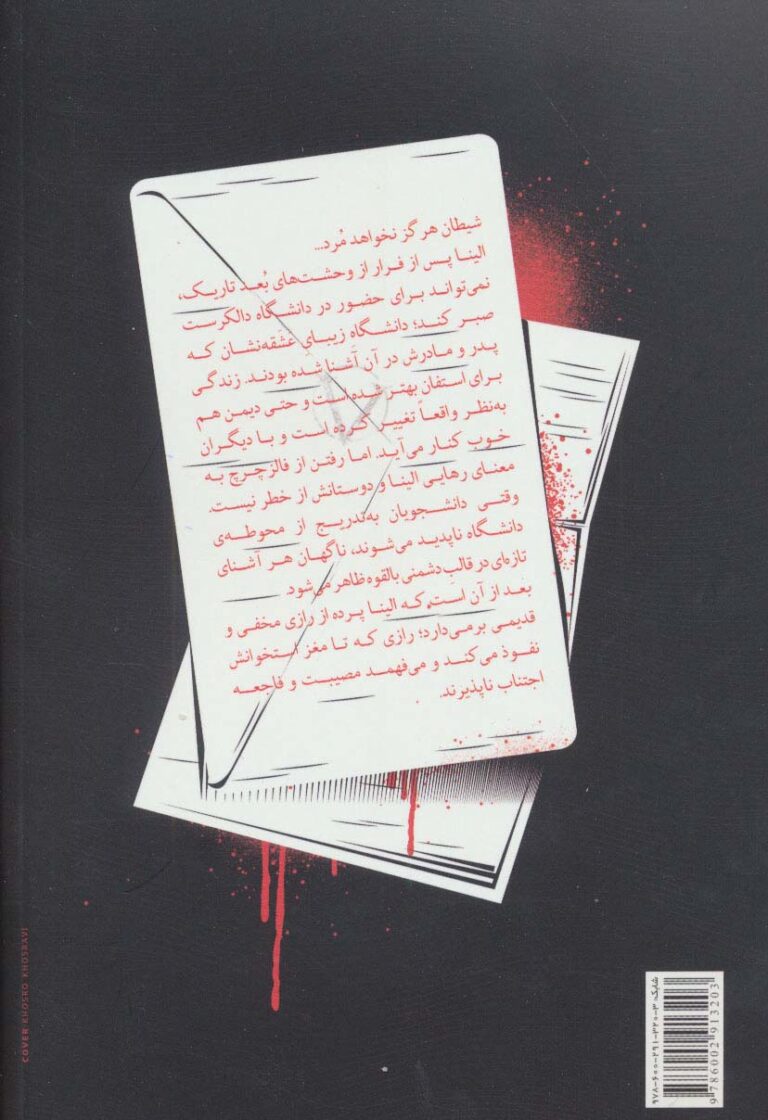 شیطان هرگز نخواهد مُرد...
الینا پس از فرار از وحشت‌های بُعد تاریک،
نمی‌تواند برای حضور در دانشگاه دالکرست
صبر کند؛ دانشگاه زیبایِ عشقه‌نشان که
پدر و مادرش در آن آشنا شده بودند. زندگی
برای استفان بهتر شده است و حتی دیمن هم
به‌نظر واقعاً تغییر کرده است و با دیگران
خوب کنار می‌آید. اما رفتن از فالزچرچ به
معنای رهایی الینا و دوستانش از خطر نیست.
وقتی دانشجویان به‌تدریج از محوطه‌ی
دانشگاه ناپدید می‌شوند، ناگهان هر آشنای
تازه‌ای در قالبِ دشمنی بالقوه ظاهر می‌شود.
بعد از آن است که الینا پرده از رازی مخفی و
قدیمی برمی‌دارد؛ رازی که تا مغز استخوانش
نفوذ می‌کند و می‌فهمد مصیبت و فاجعه
اجتناب ناپذیرند.
COVER KHOSRO KHOSRAVI
شابک: ۹۷۸-۶۰۰-۲۹۱-۳۲۰-۳
9786002913203